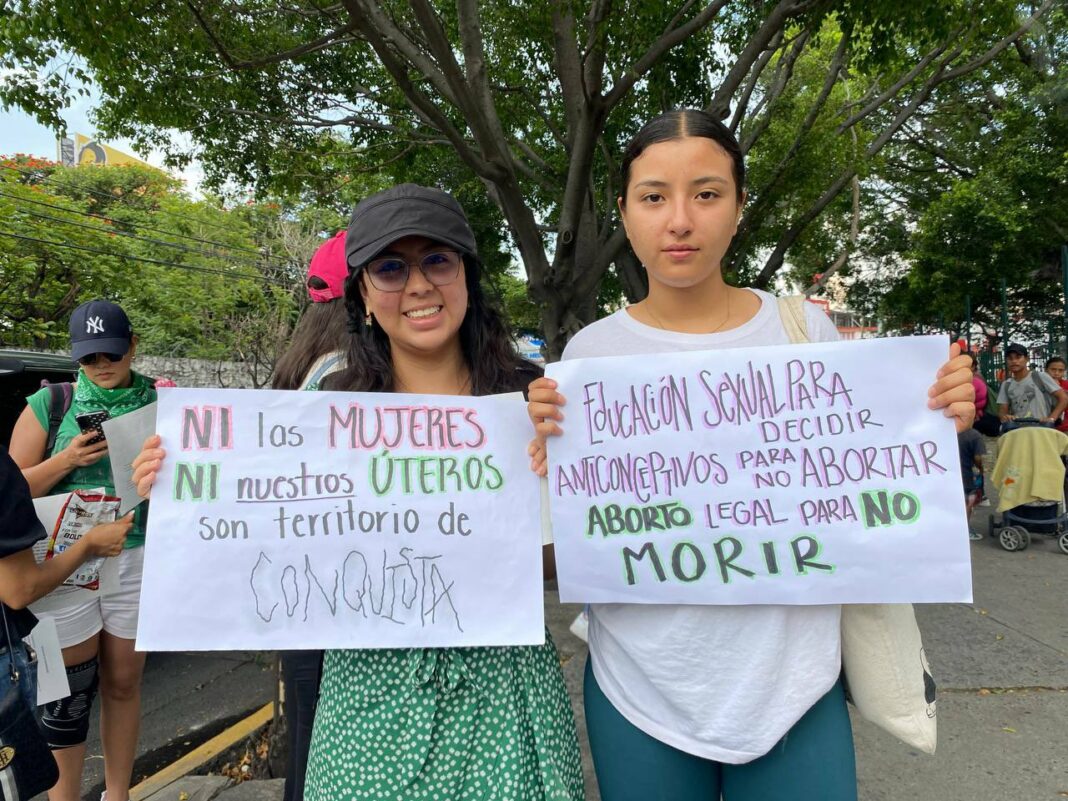 NI las MUJERES
NI nuestros ÚTEROS
son territorio de
CONQUISTA
EDUCACIÓN SEXUAL PARA
DECIDIR
ANTICONCEPTIVOS PARA NO ABORTAR
ABORTO LEGAL PARA NO
MORIR
NY